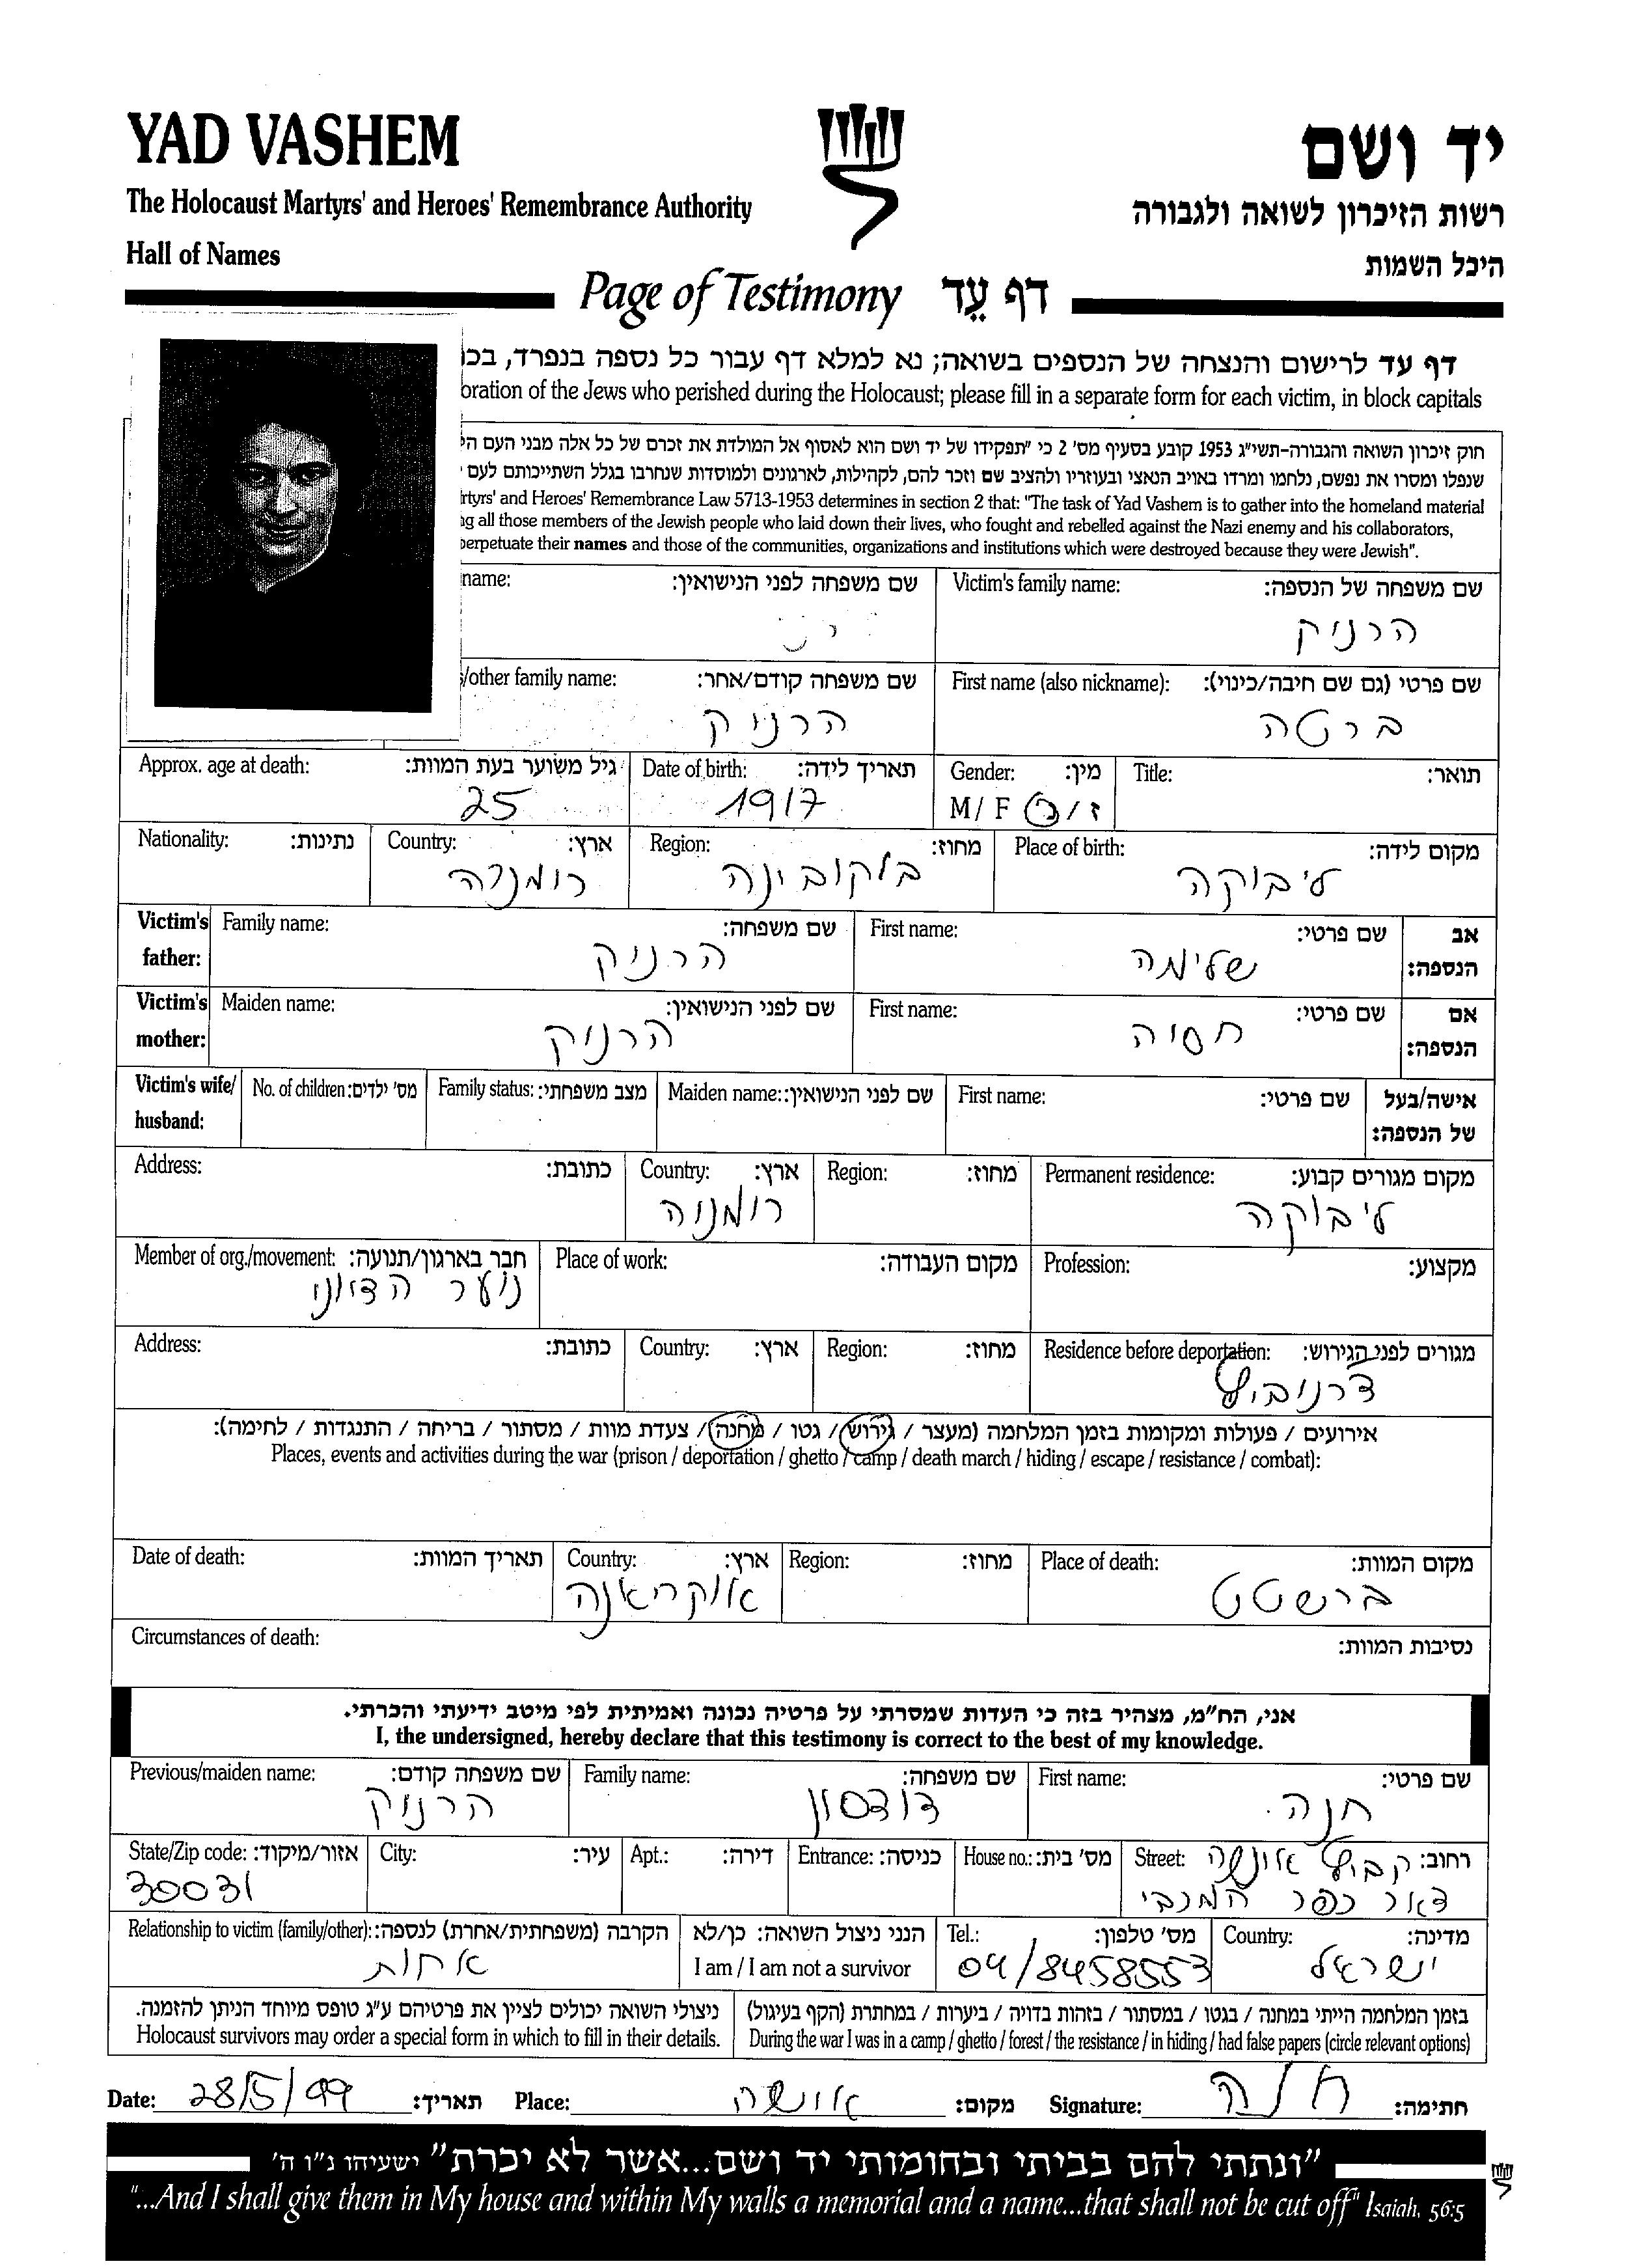 YAD VASHEM
יד ושם
The Holocaust Martyrs' and Heroes' Remembrance Authority
רשות הזיכרון לשואה ולגבורה
Hall of Names
היכל השמות
Page of Testimony דף עֵד
דף עד לרישום והנצחה של הנספים בשואה; נא למלא דף עבור כל נספה בנפרד,
oration of the Jews who perished during the Holocaust; please fill in a separate form for each victim, in block capitals
חוק זיכרון השואה והגבורה-תשי"ג 1953 קובע בסעיף מס' 2 כי "תפקידו של יד ושם הוא לאסוף אל המולדת את זכרם של כל אלה מבני העם
שנפלו ומסרו את נפשם, נלחמו ומרדו באויב הנאצי ובעוזריו ולהציב שם וזכר להם, לקהילות, לארגונים ולמוסדות שנחרבו בגלל השתייכותם לעם
rtyrs' and Heroes' Remembrance Law 5713-1953 determines in section 2 that: "The task of Yad Vashem is to gather into the homeland material
ng all those members of the Jewish people who laid down their lives, who fought and rebelled against the Nazi enemy and his collaborators,
perpetuate their names and those of the communities, organizations and institutions which were destroyed because they were Jewish".
שם משפחה של הנספה: Victim's family name: שם משפחה לפני הנישואין: name:
הרניק
שם פרטי (גם שם חיבה/כינוי): First name (also nickname): שם משפחה קודם/אחר: /other family name:
ברטה הרניק
תואר: Title: מין: Gender: תאריך לידה: Date of birth: גיל משוער בעת המוות: Approx. age at death:
M / F ז / נ 1917 25
מקום לידה: Place of birth: מחוז: Region: ארץ: Country: נתינות: Nationality:
ליבוקה בוקובינה רומניה
אב הנספה: שם פרטי: First name: שם משפחה: Family name: Victim's father:
שלימה הרניק
אם הנספה: שם פרטי: First name: שם לפני הנישואין: Maiden name: Victim's mother:
חסיה הרניק
אישה/בעל של הנספה: שם פרטי: First name: שם לפני הנישואין: Maiden name: מצב משפחתי: Family status: מס' ילדים: No. of children: Victim's wife/ husband:
מקום מגורים קבוע: Permanent residence: מחוז: Region: ארץ: Country: כתובת: Address:
ליבוקה רומניה
מקצוע: Profession: מקום העבודה: Place of work: חבר בארגון/תנועה: Member of org./movement:
נוער הציוני
מגורים לפני הגירוש: Residence before deportation: מחוז: Region: ארץ: Country: כתובת: Address:
צרנוביץ
אירועים / פעולות ומקומות בזמן המלחמה (מעצר / גירוש / גטו / מחנה / צעדת מוות / מסתור / בריחה / התנגדות / לחימה):
Places, events and activities during the war (prison / deportation / ghetto / camp / death march / hiding / escape / resistance / combat):
מקום המוות: Place of death: מחוז: Region: ארץ: Country: תאריך המוות: Date of death:
ברשטט אוקריאנה
נסיבות המוות: Circumstances of death:
אני, הח"מ, מצהיר בזה כי העדות שמסרתי על פרטיה נכונה ואמיתית לפי מיטב ידיעתי והכרתי.
I, the undersigned, hereby declare that this testimony is correct to the best of my knowledge.
שם פרטי: First name: שם משפחה: Family name: שם משפחה קודם: Previous/maiden name:
חנה דודסון הרניק
רחוב: Street: מס' בית: House no.: כניסה: Entrance: דירה: Apt.: עיר: City: אזור/מיקוד: State/Zip code:
קבוץ אושה 30031
דאר כפר המכבי
מדינה: Country: מס' טלפון: Tel.: הנני ניצול השואה: כן/לא הקרבה (משפחתית/אחרת) לנספה: Relationship to victim (family/other):
ישראל 04/8458553 I am / I am not a survivor אחות
בזמן המלחמה הייתי במחנה / בגטו / במסתור / בזהות בדויה / ביערות / במחתרת (הקף בעיגול) ניצולי השואה יכולים לציין את פרטיהם ע"ג טופס מיוחד הניתן להזמנה.
During the war I was in a camp / ghetto / forest / the resistance / in hiding / had false papers (circle relevant options) Holocaust survivors may order a special form in which to fill in their details.
חתימה: חנה Signature: מקום: אושה Place: תאריך: 28/5/99 Date:
"ונתתי להם בביתי ובחומותי יד ושם...אשר לא יכרת" ישעיהו נ"ו ה'
"...And I shall give them in My house and within My walls a memorial and a name...that shall not be cut off" Isaiah, 56:5